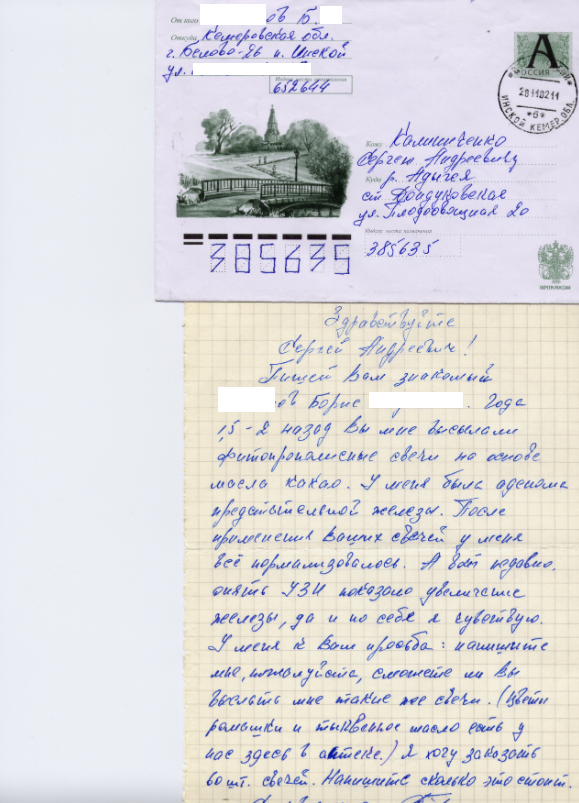 От кого ов Б.
Откуда Кемеровская обл.
г. Белово-26 п. Инской
ул.
652644
А
РОССИЯ
ИНСКОЙ КЕМЕР. ОБЛ.
Кому Калиниченко
Сергею Андреевичу
Куда р. Адыгея
ст Дондуковская
ул. Плодоовощная 20
Индекс места назначения
385635
385635
Здравствуйте
Сергей Андреевич!
Пишет Вам знакомый
ов Борис . Года
1,5-2 назад Вы мне высылали
фитопрополисные свечи на основе
масла какао. У меня была аденома
предстательной железы. После
применения Ваших свечей у меня
всё нормализовалось. А вот недавно
опять УЗИ показало увеличение
железы, да и по себе я чувствую.
У меня к Вам просьба: напишите
мне, пожалуйста, сможете ли Вы
выслать мне такие же свечи. (Цветы
ромашки и тыквенное масло есть у
нас здесь в аптеке.) Я хочу заказать
шт. свечей. Напишите сколько это стоит.